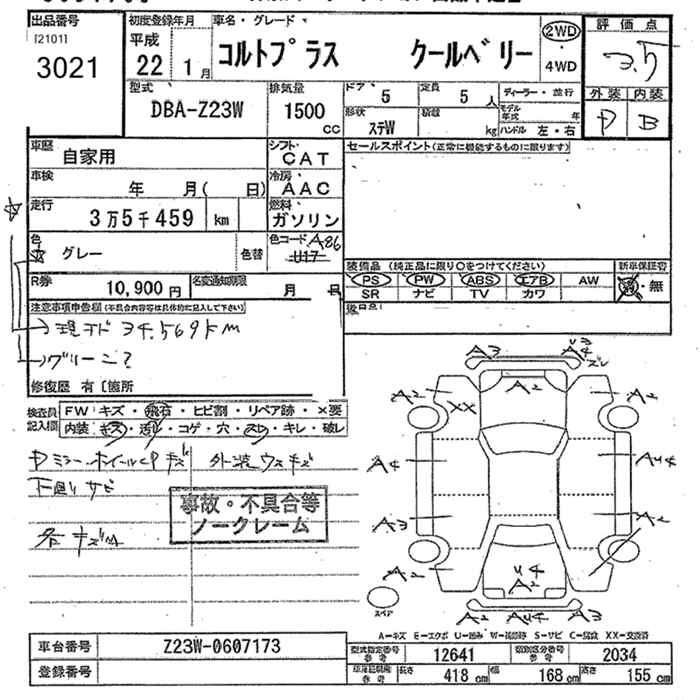 出品番号
[2101]
3021
初度登録年月
平成
22 1月
車名・グレード
コルトプラス クールベリー
2WD
4WD
評価点
3.5
外装 内装
B
型式
DBA-Z23W
排気量
1500
CC
ドア
5
定員
5人
ディーラー・並行
形状
ステW
積載
kg
モデル年式 年
ハンドル 左・右
車歴
自家用
シフト
CAT
車検
年 月( 日)
冷房
AAC
走行
3万5千459 km
燃料
ガソリン
色
グレー
色替
色コード A86
U17
R券
10,900円
名変通知期限
月 日
セールスポイント(正常に機能するものに限ります)
装備品 (純正品に限り○をつけてください)
新車保証書
PS PW ABS エアB AW
有・無
SR ナビ TV カワ
後日品
注意事項申告欄(不具合内容等は具体的に記入して下さい)
→現状 34,569km
→グリーン?
修復歴 有〔箇所
検査員記入欄
FW キズ・飛石・ヒビ割・リペア跡・×要
内装 キズ・汚れ・コゲ・穴・スレ・キレ・破レ
ミラー・ホイールCP キズ
外装ウスキズ
下廻りサビ
各キズ
事故・不具合等
ノークレーム
A3 A4
ズレ
A2 A2 A2
XX
A4 AU4
A3 A2
A2 U4
A2
A2 AU4 A2
スペア
A-キズ E-エクボ U-凹み W-補修跡 S-サビ C-腐食 XX-交換済
車台番号
Z23W-0607173
登録番号
型式指定番号
参考
12641
類別区分番号
参考
2034
車庫証明用
参考
長さ 418 cm
幅 168 cm
高さ 155 cm